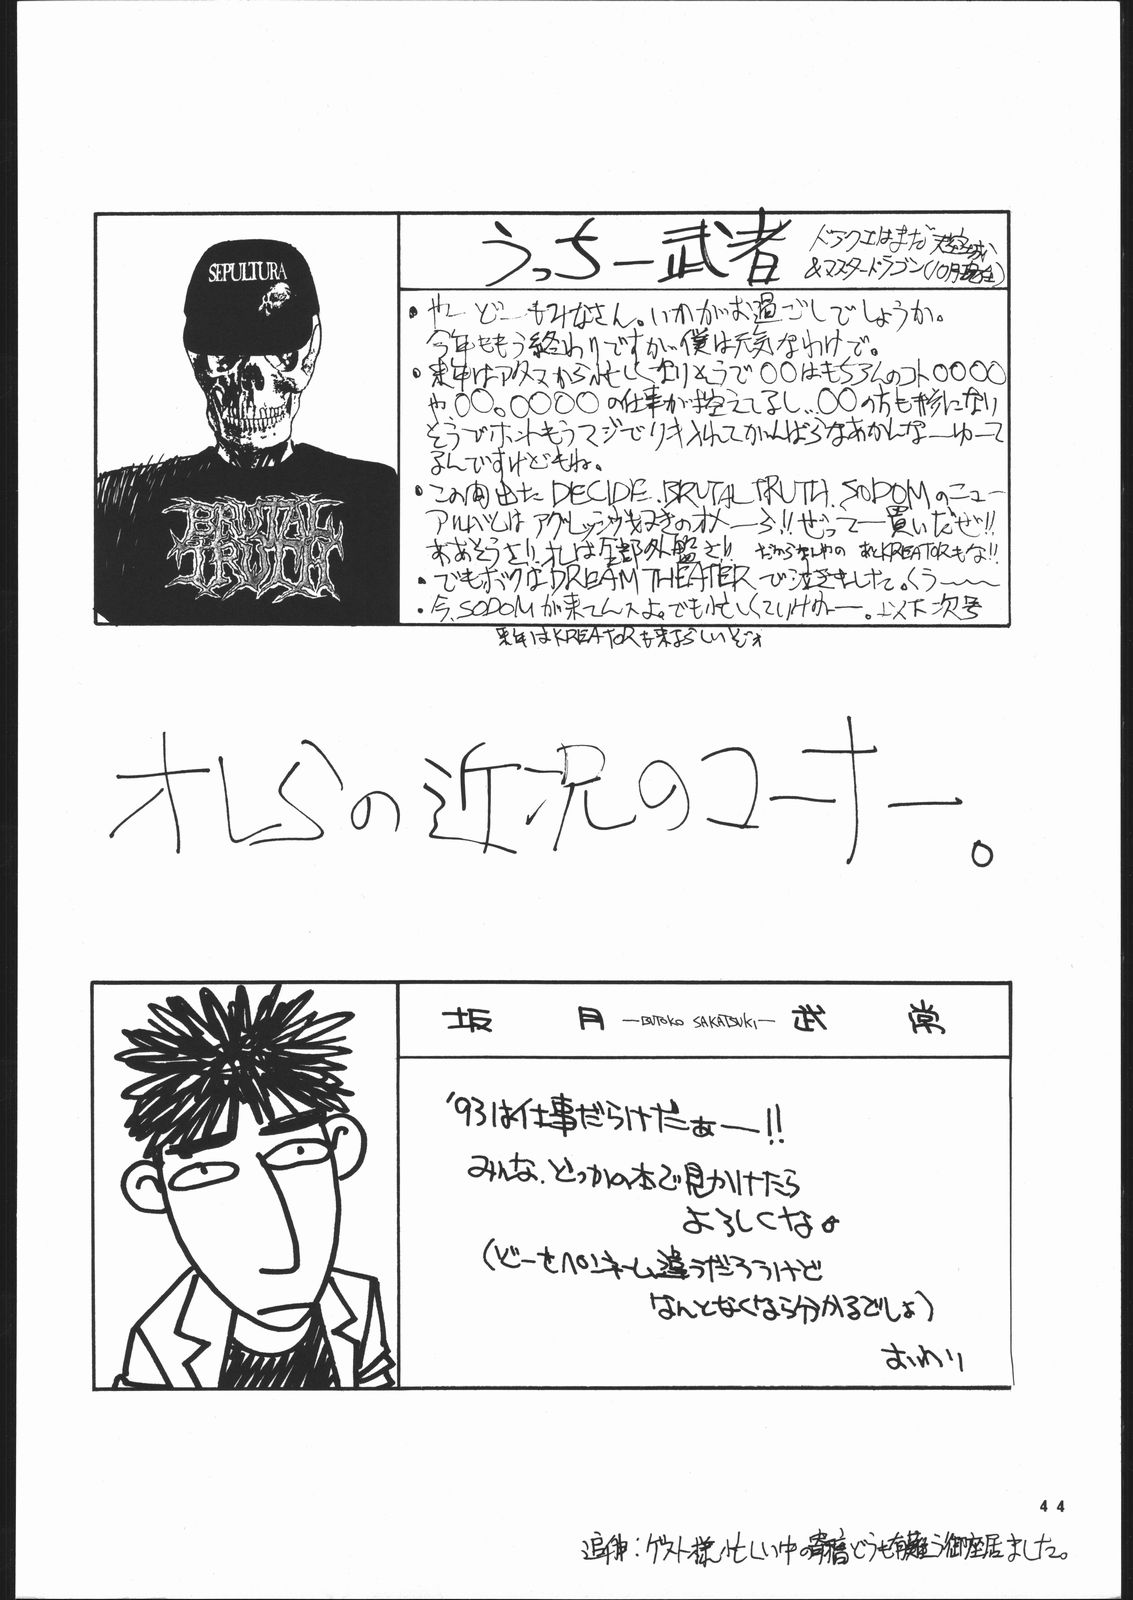 SEPULTURA
BRUTAL
TRUTH
うっちー武者
ドラクエはまだ天空城
&マスタードラゴン(10月現在)
・やーどーもみなさん。いかがお過ごしでしょうか。
今年ももう終わりですが、僕は元気なわけで。
・来年はアタマから忙しくなりそうで〇〇はもちろんのコト〇〇〇〇
や、〇〇。〇〇〇〇の仕事が控えてるし…〇〇の方も移になり
そうでホントもうマジでリキ入れてがんばらなあかんなーゆーて
るんですけどもね。
・この間出た DECIDE、BRUTAL TRUTH、SODOMのニュー
アルバムはアグレッシヴ好きのオメーら!!ぜってー買いだぜ!!
ああそうさ!!オレは全部外盤さ!! あとKREATORもな!!
・でもボクはDREAM THEATERで泣きました。くぅ〜〜
・今、SODOMが来てんスよ。でも忙しくていけねー。以下次号
来年はKREATORも来るらしいぞォ
オレらの近況のコーナー。
坂月 —BUTOKO SAKATSUKI— 武常
'93は仕事だらけだぁー!!
みんな、どっかの本で見かけたら
よろしくな。
(どーせペンネーム違うだろうけど
なんとなくなら分かるでしょ)
おわり
44
追伸:ゲスト様、忙しい中の寄稿どうも有難う御座居ました。